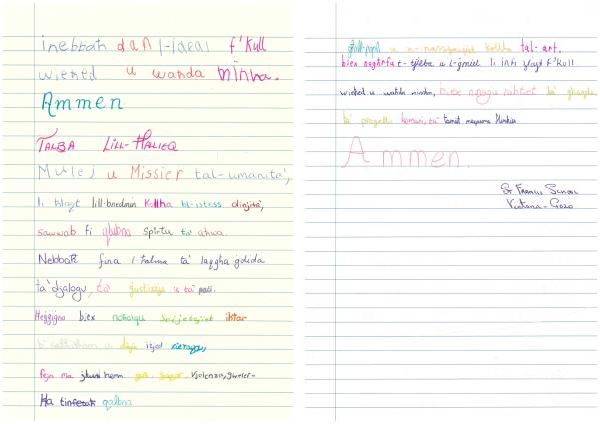 inebbaħ dan l-ideal f'kull
wieħed u waħda minna.
Ammen
TALBA LILL-ĦALIEQ
Mulej u Missier tal-umanità,
li ħlaqt lill-bnedmin kollha bl-istess dinjità,
sawwab fi qlubna spirtu ta' aħwa.
Nebbaħ fina l-ħolma ta' laqgħa ġdida
ta' djalogu, ta' ġustizzja u ta' paċi.
Ħeġġiġna biex noħolqu soċjetajiet iktar
b'saħħithom u dinja iżjed
fejn ma jkunx hemm ġuħ, faqar, vjolenza, gwerer.
Ħa tinfetaħ qalbna
għall-popli u n-nazzjonijiet kollha tal-art,
biex nagħrfu t-tjieba u l-ġmiel li inti żrajt f'kull
wieħed u waħda minna, biex ninqgħu rabtiet ta' għaqda,
ta' proġetti komuni, ta' tamiet
Ammen.
St Francis School
Victoria - Gozo